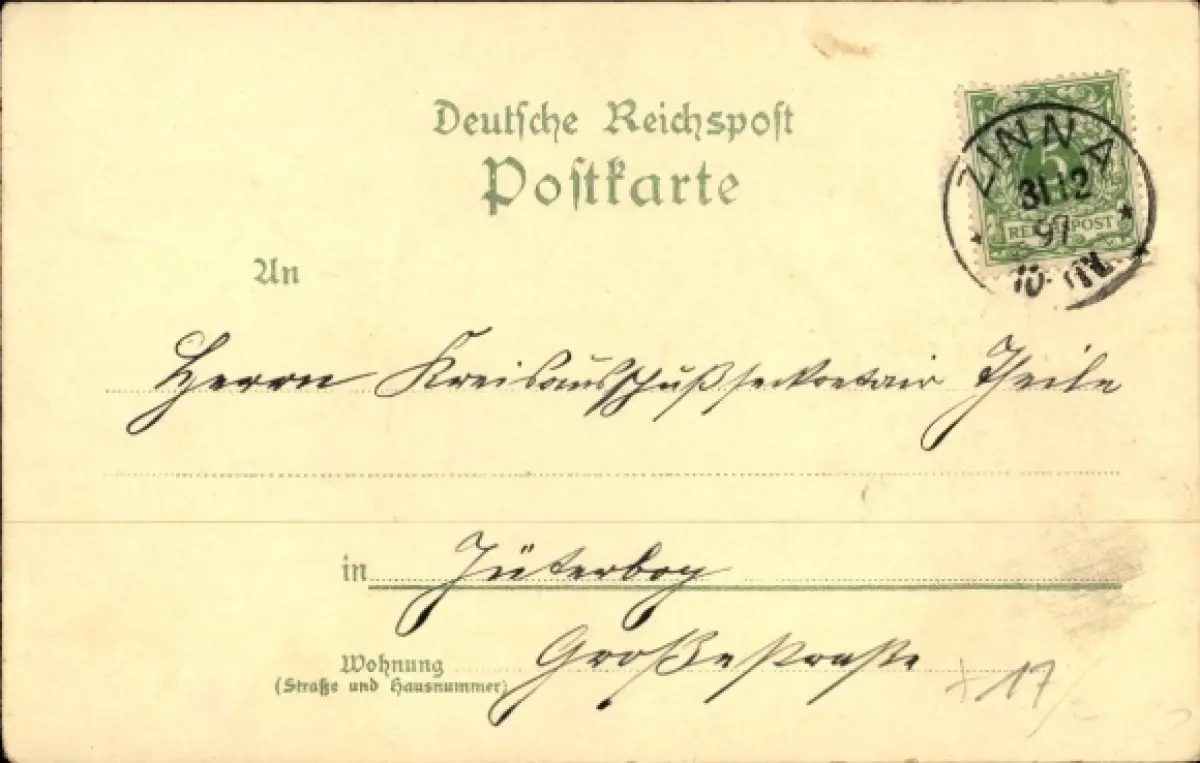 Deutsche Reichspost
Postkarte
5
REICHSPOST
ZINNA
31 12
97
An
Herrn Kreisausschußsekretair Theile
in Jüterbog
Wohnung Großestraße
(Straße und Hausnummer)
17